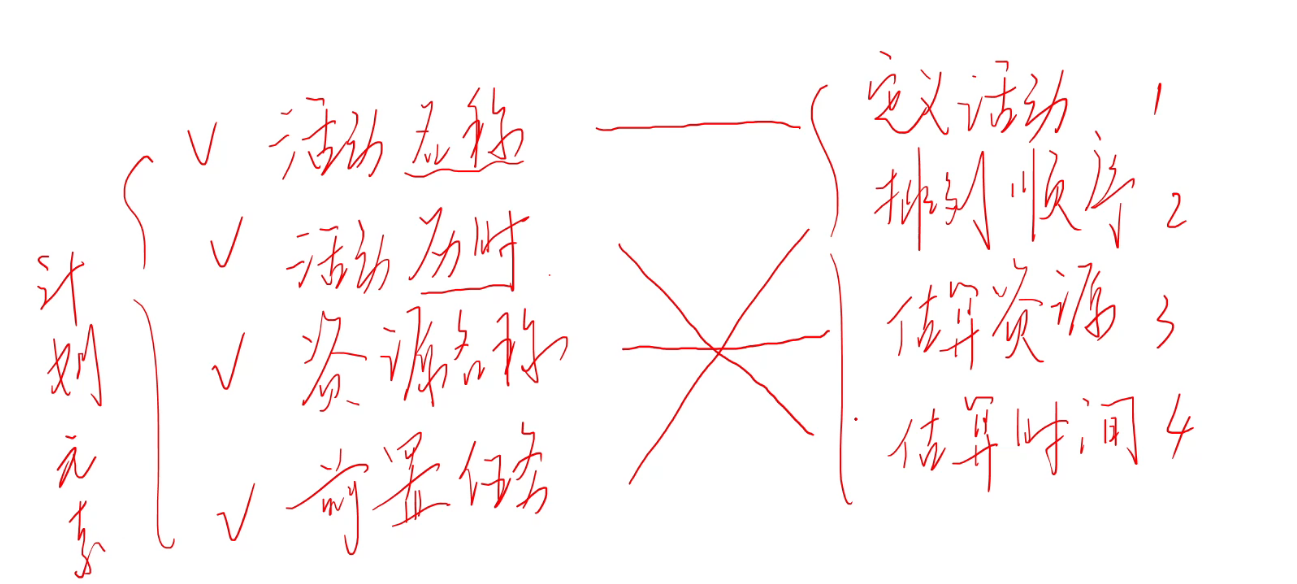 计划元素
✓ 活动名称
✓ 活动历时
✓ 资源名称
✓ 前置任务
定义活动 1
排列顺序 2
估算资源 3
估算时间 4